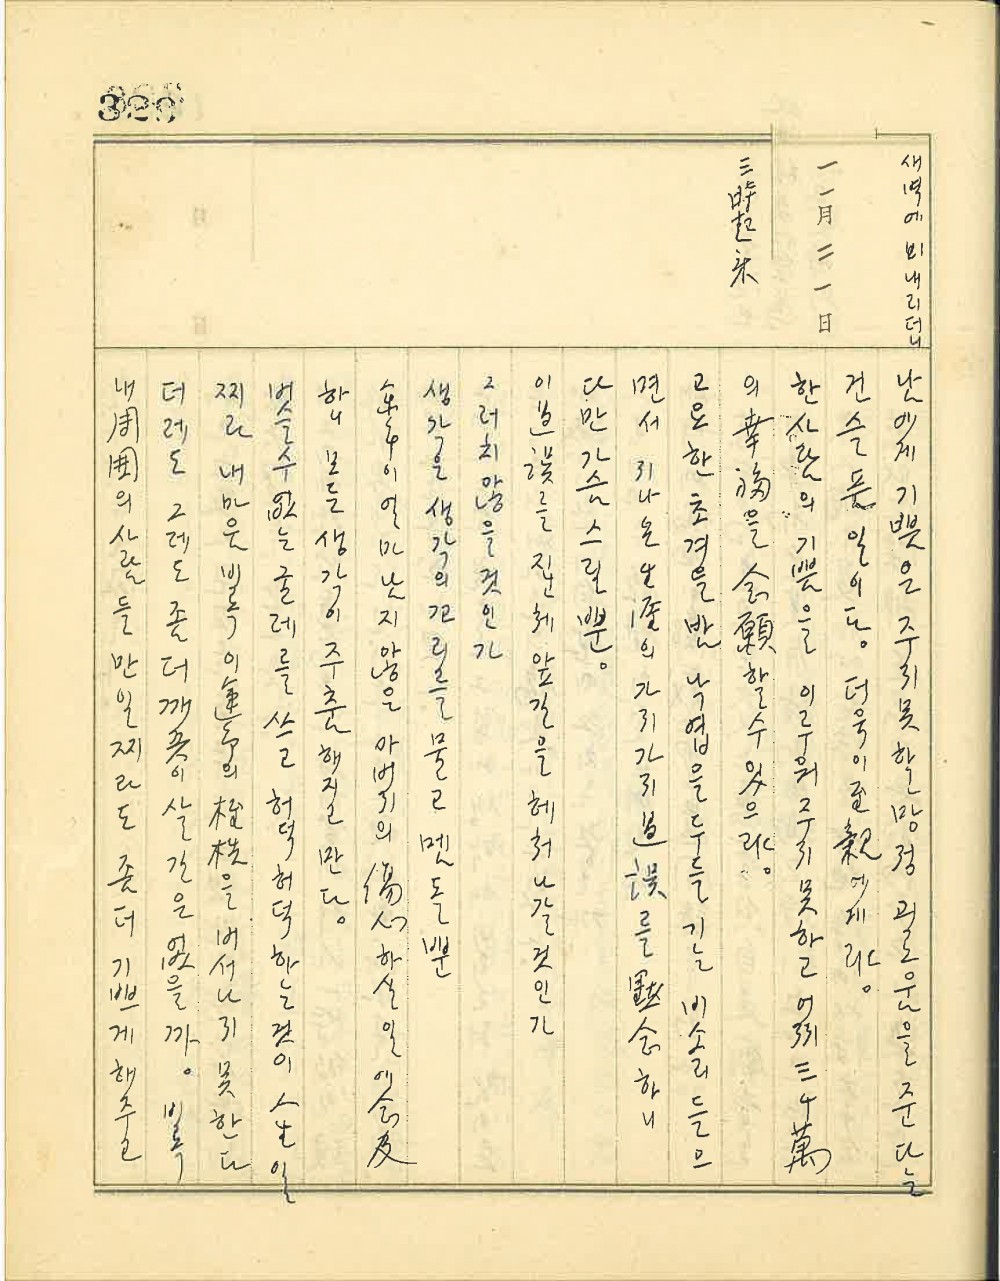 새벽에 비내리더니
一一月二一日
三時起床
남에게 기쁨은 주지못할망정 괴로움을 준다는
건 슬픈 일이다. 더욱이 至親에게랴.
한 사람의 기쁨을 이루워주지 못하고 어찌 三十萬
의 幸福을 念願할 수 있으랴.
고요한 초겨울 밤 낙엽을 두들기는 비소리 들으
면서 지나온 生涯의 가지가지 過誤를 默念하니
다만 가슴 스릴 뿐.
이 過誤를 진체 앞길을 헤처나갈 것인가
그러치 않을 것인가
생각은 생각의 꼬리를 물고 멧돌 뿐
余命이 얼마 남지 않은 아버지의 傷心하실 일에 念及
하니 모든 생각이 주춤해질만다.
벗을 수 없는 굴레를 쓰고 허덕허덕하는 것이 人生일
찌라 내 마음 비록 이 運命의 桎梏을 버서나지 못한다
더레도 그레도 좀 더 깨끗이 살 길은 없을까. 비록
내 周囲의 사람들만일찌라도 좀 더 기쁘게 해주고